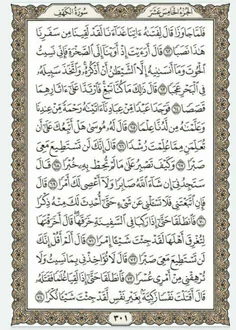 الجزء الخامس عشر سورة الكهف
فلما جاوزا قال لفتىه ءاتنا غداءنا لقد لقينا من سفرنا
هذا نصبا ٦٢ قال أرءيت إذ أوينا إلى الصخرة فإني نسيت
الحوت وما أنسىنيه إلا الشيطن أن أذكره واتخذ سبيله
في البحر عجبا ٦٣ قال ذلك ما كنا نبغ فارتدا على ءاثارهما
قصصا ٦٤ فوجدا عبدا من عبادنا ءاتينه رحمة من عندنا
وعلمنه من لدنا علما ٦٥ قال له موسى هل أتبعك على أن
تعلمن مما علمت رشدا ٦٦ قال إنك لن تستطيع معي
صبرا ٦٧ وكيف تصبر على ما لم تحط به خبرا ٦٨ قال
ستجدني إن شاء الله صابرا ولا أعصي لك أمرا ٦٩ قال
فإن اتبعتني فلا تسءلني عن شيء حتى أحدث لك منه ذكرا
٧٠ فانطلقا حتى إذا ركبا في السفينة خرقها قال أخرقتها
لتغرق أهلها لقد جئت شيءا إمرا ٧١ قال ألم أقل إنك
لن تستطيع معي صبرا ٧٢ قال لا تؤاخذني بما نسيت ولا
ترهقني من أمري عسرا ٧٣ فانطلقا حتى إذا لقيا غلما فقتله
قال أقتلت نفسا زكية بغير نفس لقد جئت شيءا نكرا ٧٤
٣٠١